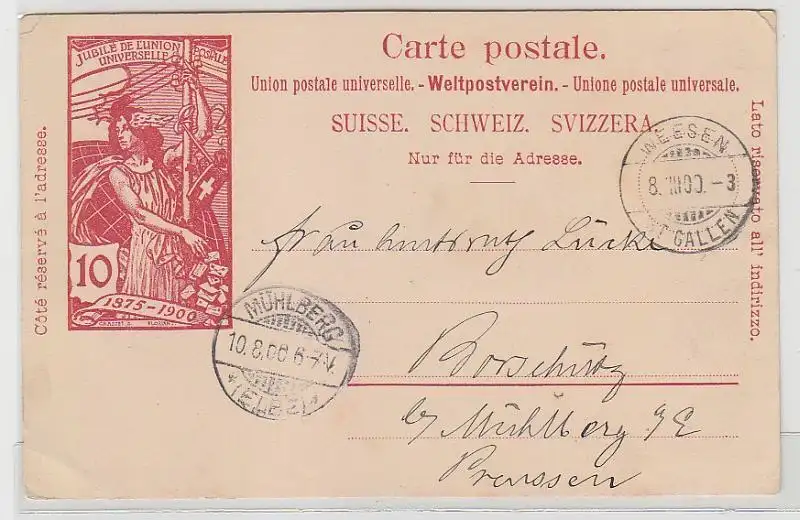 JUBILÉ DE L'UNION POSTALE
UNIVERSELLE
10
1875-1900
GRASSET D. FLORIAN S.
Côté réservé à l'adresse.
Carte postale.
Union postale universelle. - Weltpostverein. - Unione postale universale.
SUISSE. SCHWEIZ. SVIZZERA.
Nur für die Adresse.
Lato riservato all' indirizzo.
WEESEN
8.VIII00.-3
ST GALLEN
Frau Amtsrath Lücke
Borschütz
b/ Mühlberg a/E
Preussen
MÜHLBERG
10.8.00.6-7V.
*(ELBE)*